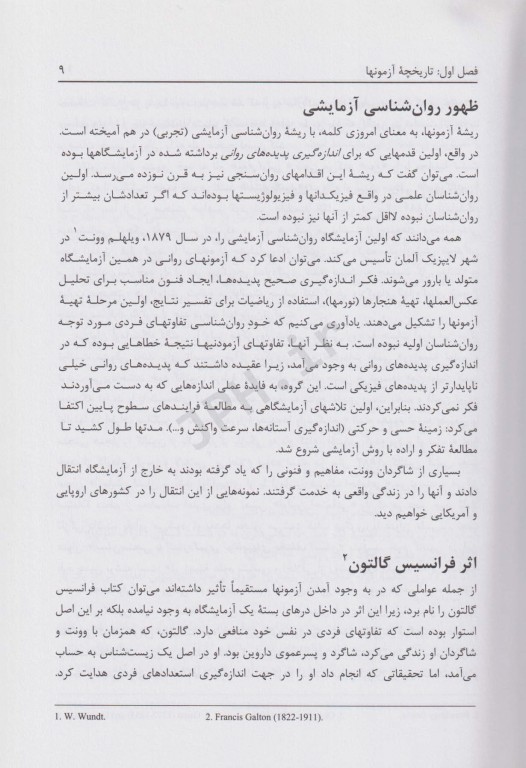 فصل اول: تاریخچهٔ آزمونها ۹
ظهور روان‌شناسی آزمایشی
ریشهٔ آزمونها، به معنای امروزی کلمه، با ریشهٔ روان‌شناسی آزمایشی (تجربی) در هم آمیخته است.
در واقع، اولین قدمهایی که برای اندازه‌گیری پدیده‌های روانی برداشته شده در آزمایشگاهها بوده
است. می‌توان گفت که ریشهٔ این اقدامهای روان‌سنجی نیز به قرن نوزده می‌رسد. اولین
روان‌شناسان علمی در واقع فیزیکدانها و فیزیولوژیستها بوده‌اند که اگر تعدادشان بیشتر از
روان‌شناسان نبوده لااقل کمتر از آنها نیز نبوده است.
همه می‌دانند که اولین آزمایشگاه روان‌شناسی آزمایشی را، در سال ۱۸۷۹، ویلهلم وونت۱ در
شهر لایپزیک آلمان تأسیس می‌کند. می‌توان ادعا کرد که آزمونهای روانی در همین آزمایشگاه
متولد یا بارور می‌شوند. فکر اندازه‌گیری صحیح پدیده‌ها، ایجاد فنون مناسب برای تحلیل
عکس‌العملها، تهیهٔ هنجارها (نورمها)، استفاده از ریاضیات برای تفسیر نتایج، اولین مرحلهٔ تهیهٔ
آزمونها را تشکیل می‌دهند. یادآوری می‌کنیم که خودِ روان‌شناسی تفاوتهای فردی مورد توجه
روان‌شناسان اولیه نبوده است. به نظر آنها، تفاوتهای آزمودنیها نتیجهٔ خطاهایی بوده که در
اندازه‌گیری پدیده‌های روانی به وجود می‌آمد، زیرا عقیده داشتند که پدیده‌های روانی خیلی
ناپایدارتر از پدیده‌های فیزیکی است. این گروه، به فایدهٔ عملی اندازه‌هایی که به دست می‌آوردند
فکر نمی‌کردند. بنابراین، اولین تلاشهای آزمایشگاهی به مطالعهٔ فرایندهای سطوح پایین اکتفا
می‌کرد: زمینهٔ حسی و حرکتی (اندازه‌گیری آستانه‌ها، سرعت واکنش و...). مدتها طول کشید تا
مطالعهٔ تفکر و اراده با روش آزمایشی شروع شد.
بسیاری از شاگردان وونت، مفاهیم و فنونی را که یاد گرفته بودند به خارج از آزمایشگاه انتقال
دادند و آنها را در زندگی واقعی به خدمت گرفتند. نمونه‌هایی از این انتقال را در کشورهای اروپایی
و آمریکایی خواهیم دید.
اثر فرانسیس گالتون۲
از جمله عواملی که در به وجود آمدن آزمونها مستقیماً تأثیر داشته‌اند می‌توان کتاب فرانسیس
گالتون را نام برد، زیرا این اثر در داخل درهای بستهٔ یک آزمایشگاه به وجود نیامده بلکه بر این اصل
استوار بوده است که تفاوتهای فردی در نفس خود منافعی دارد. گالتون، که همزمان با وونت و
شاگردان او زندگی می‌کرد، شاگرد و پسرعموی داروین بود. او در اصل یک زیست‌شناس به حساب
می‌آمد، اما تحقیقاتی که انجام داد او را در جهت اندازه‌گیری استعدادهای فردی هدایت کرد.
1. W. Wundt. 2. Francis Galton (1822-1911).
JPH.ir